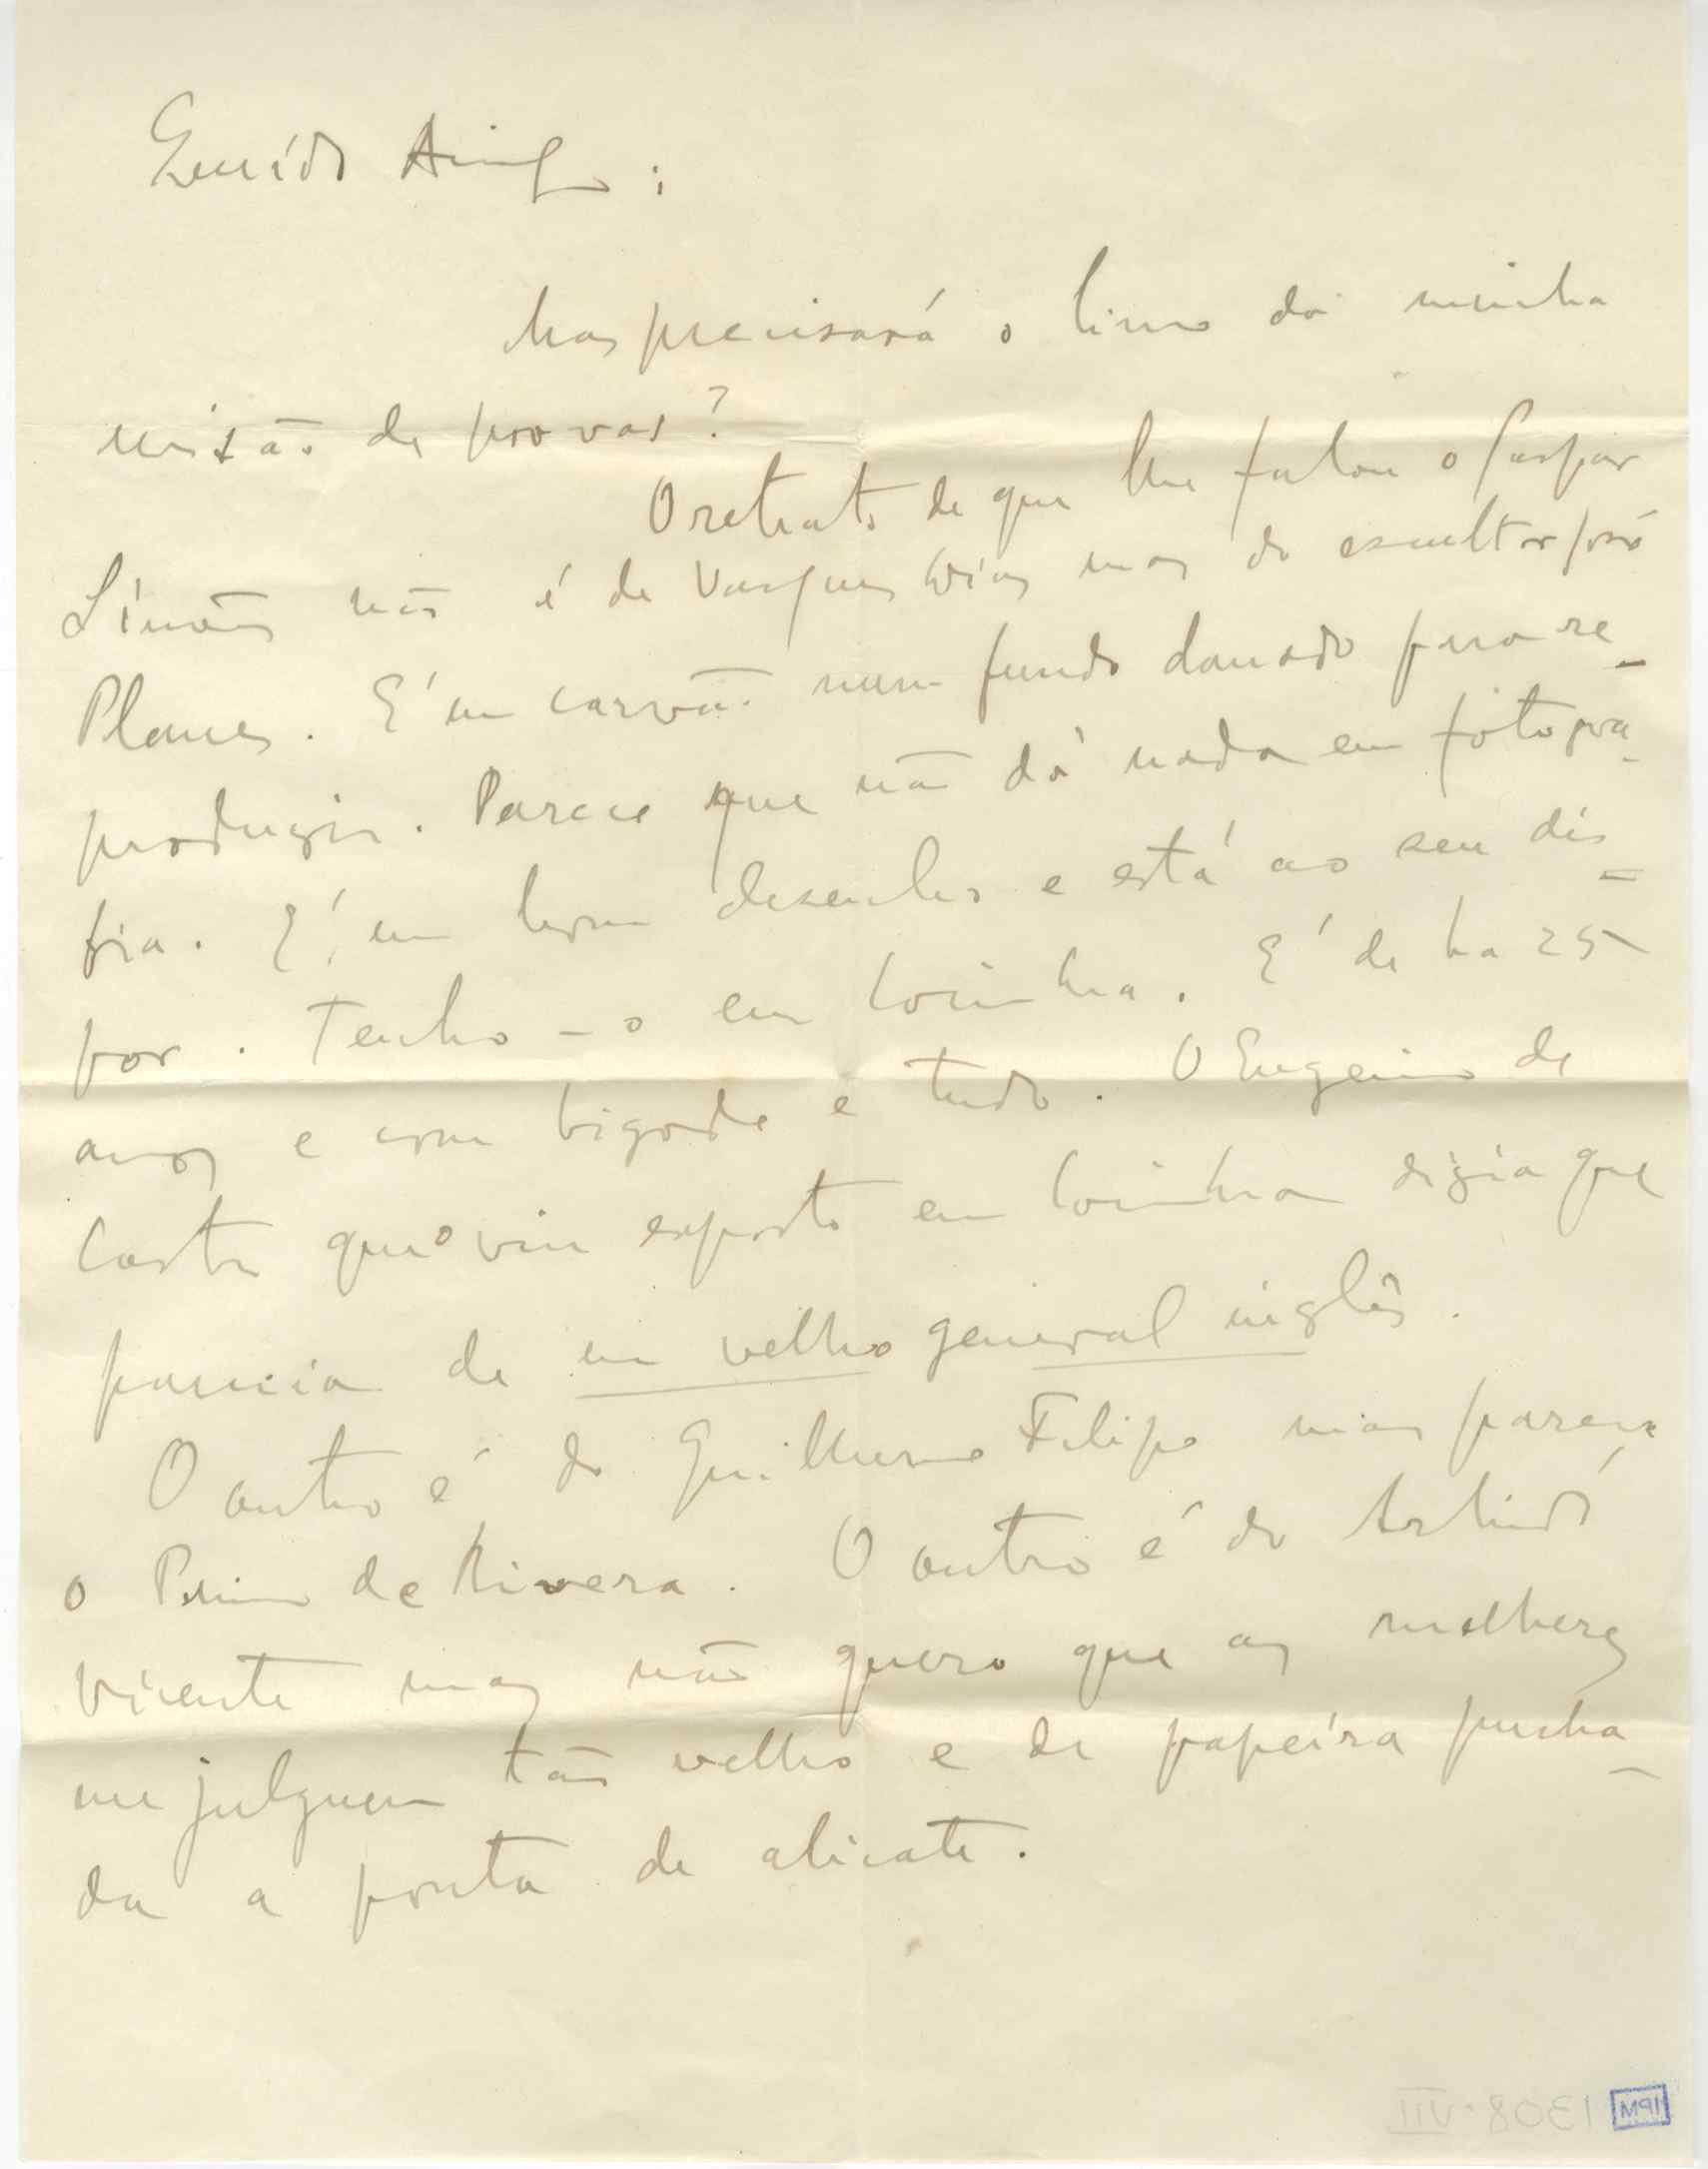 Querido Amigo:
Mas precisará o livro da minha
revisão de provas?
O retrato de que lhe falou o Gaspar
Simões não é de Vasques Dias mas do escultor José
Planes. É um carvão num fundo danado para re-
produzir. Parece que não dá nada em fotogra-
fia. É um bom desenho e está ao seu dis-
por. Tenho-o em Coimbra. É de ha 25
anos e com bigode e tudo. O Eugenio de
Castro que o viu exposto em Coimbra dizia que
parecia de um velho general inglês.
O outro é do Guilherme Filipe mas pareço
o Primo de Rivera. O outro é do Arlindo
Vicente mas não quero que as mulheres
me julguem tão velho e de papeira puxa-
da a ponta de alicate.
1308-VII IPM